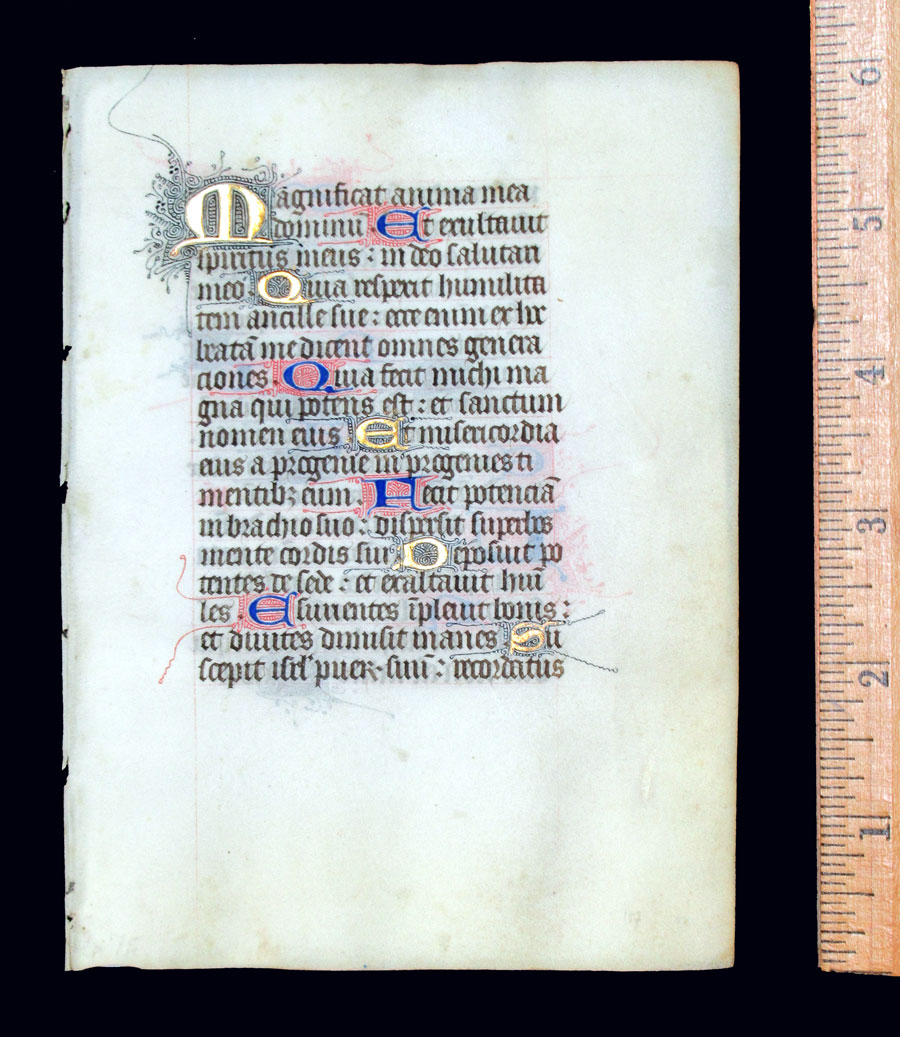 Magnificat anima mea
dominū Et exultauit
spiritus meus : in deo salutari
meo Quia respexit humilita
tem ancille sue : ecce enim ex hoc
beatā me dicent omnes genera
ciones Quia fecit michi ma
gna qui potens est : et sanctum
nomen eius Et misericordia
eius a progenie in progenies ti
mentibꝫ eum . Fecit potenciā
in brachio suo : dispersit superbos
mente cordis sui Deposuit po
tentes de sede : et exaltauit hūi
les Esurientes īpleuit bonis :
et diuites dimisit inanes Su
scepit isrl' puer suū : recordatus
6
5
4
3
2
1